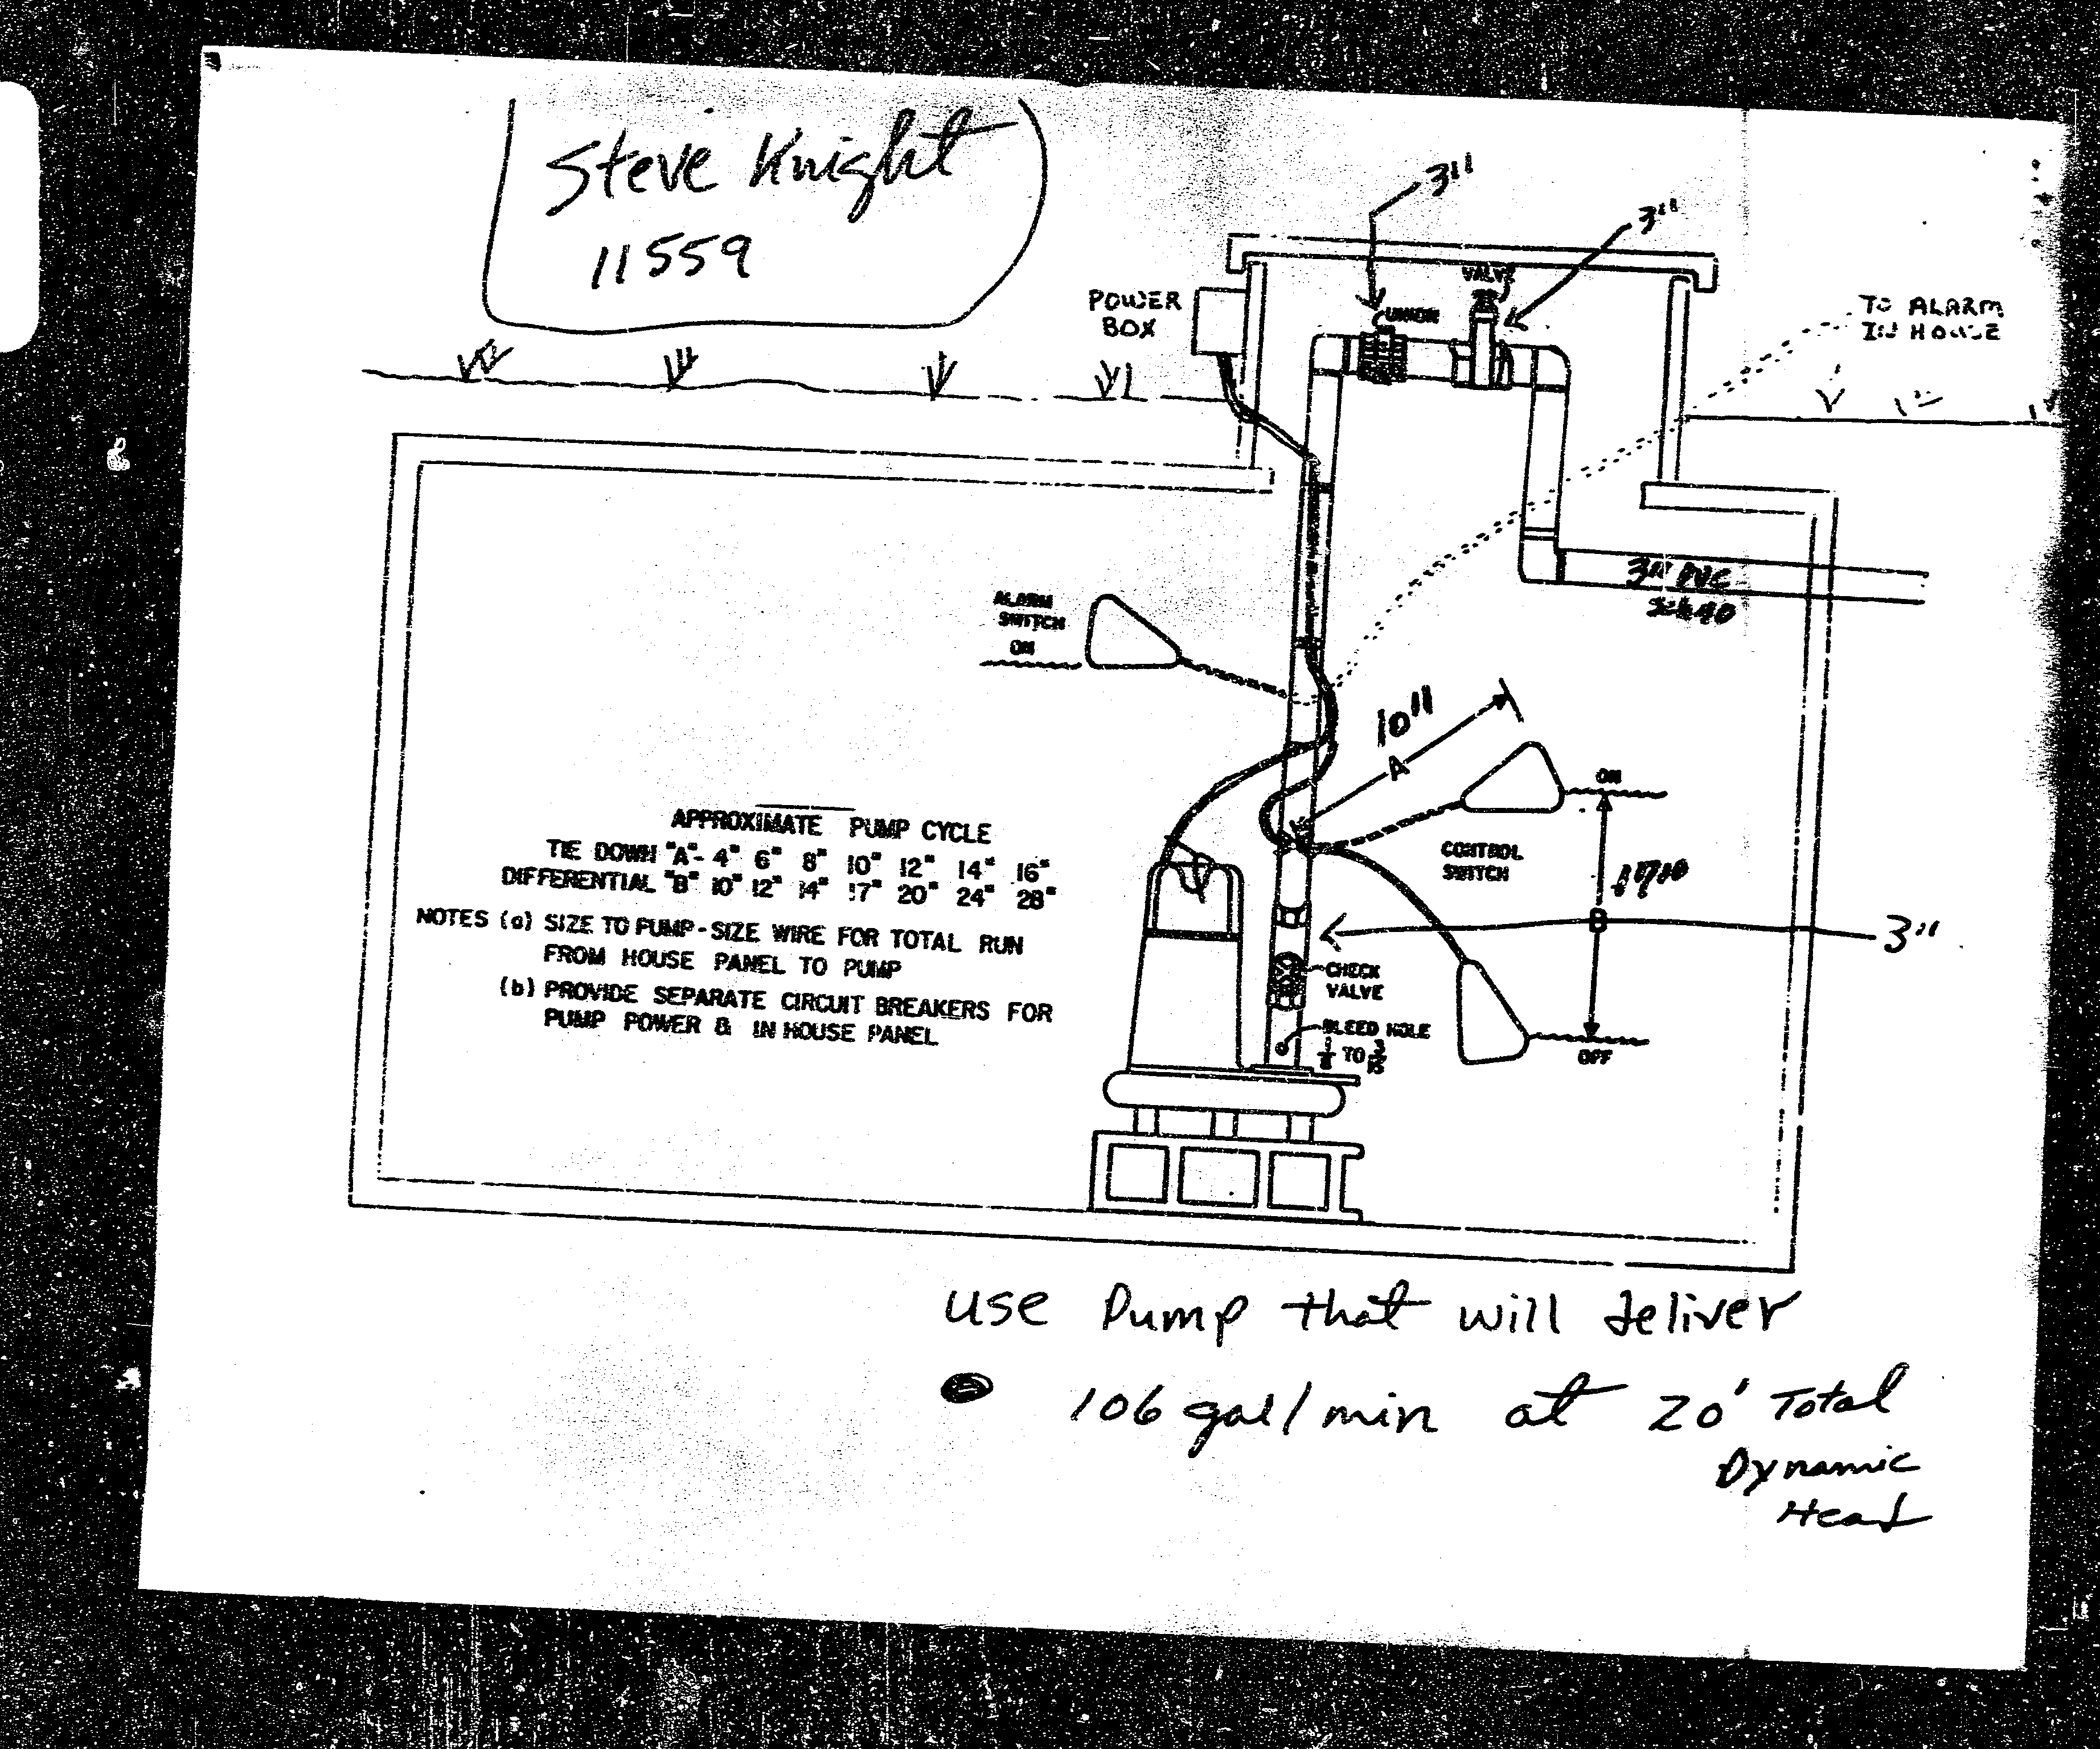 Steve Knight
11559
3"
3"
VALVE
POWER
BOX
UNION
TO ALARM
IN HOUSE
3" PVC
Sch 40
ALARM
SWITCH
ON
10"
A
ON
APPROXIMATE PUMP CYCLE
TIE DOWN "A"- 4" 6" 8" 10" 12" 14" 16"
DIFFERENTIAL "B" 10" 12" 14" 17" 20" 24" 28"
CONTROL
SWITCH
B
3"
NOTES (a) SIZE TO PUMP-SIZE WIRE FOR TOTAL RUN
FROM HOUSE PANEL TO PUMP
(b) PROVIDE SEPARATE CIRCUIT BREAKERS FOR
PUMP POWER & IN HOUSE PANEL
CHECK
VALVE
BLEED HOLE
TO
OFF
use Pump that will deliver
106 gal/min at 20' Total
Dynamic
Head